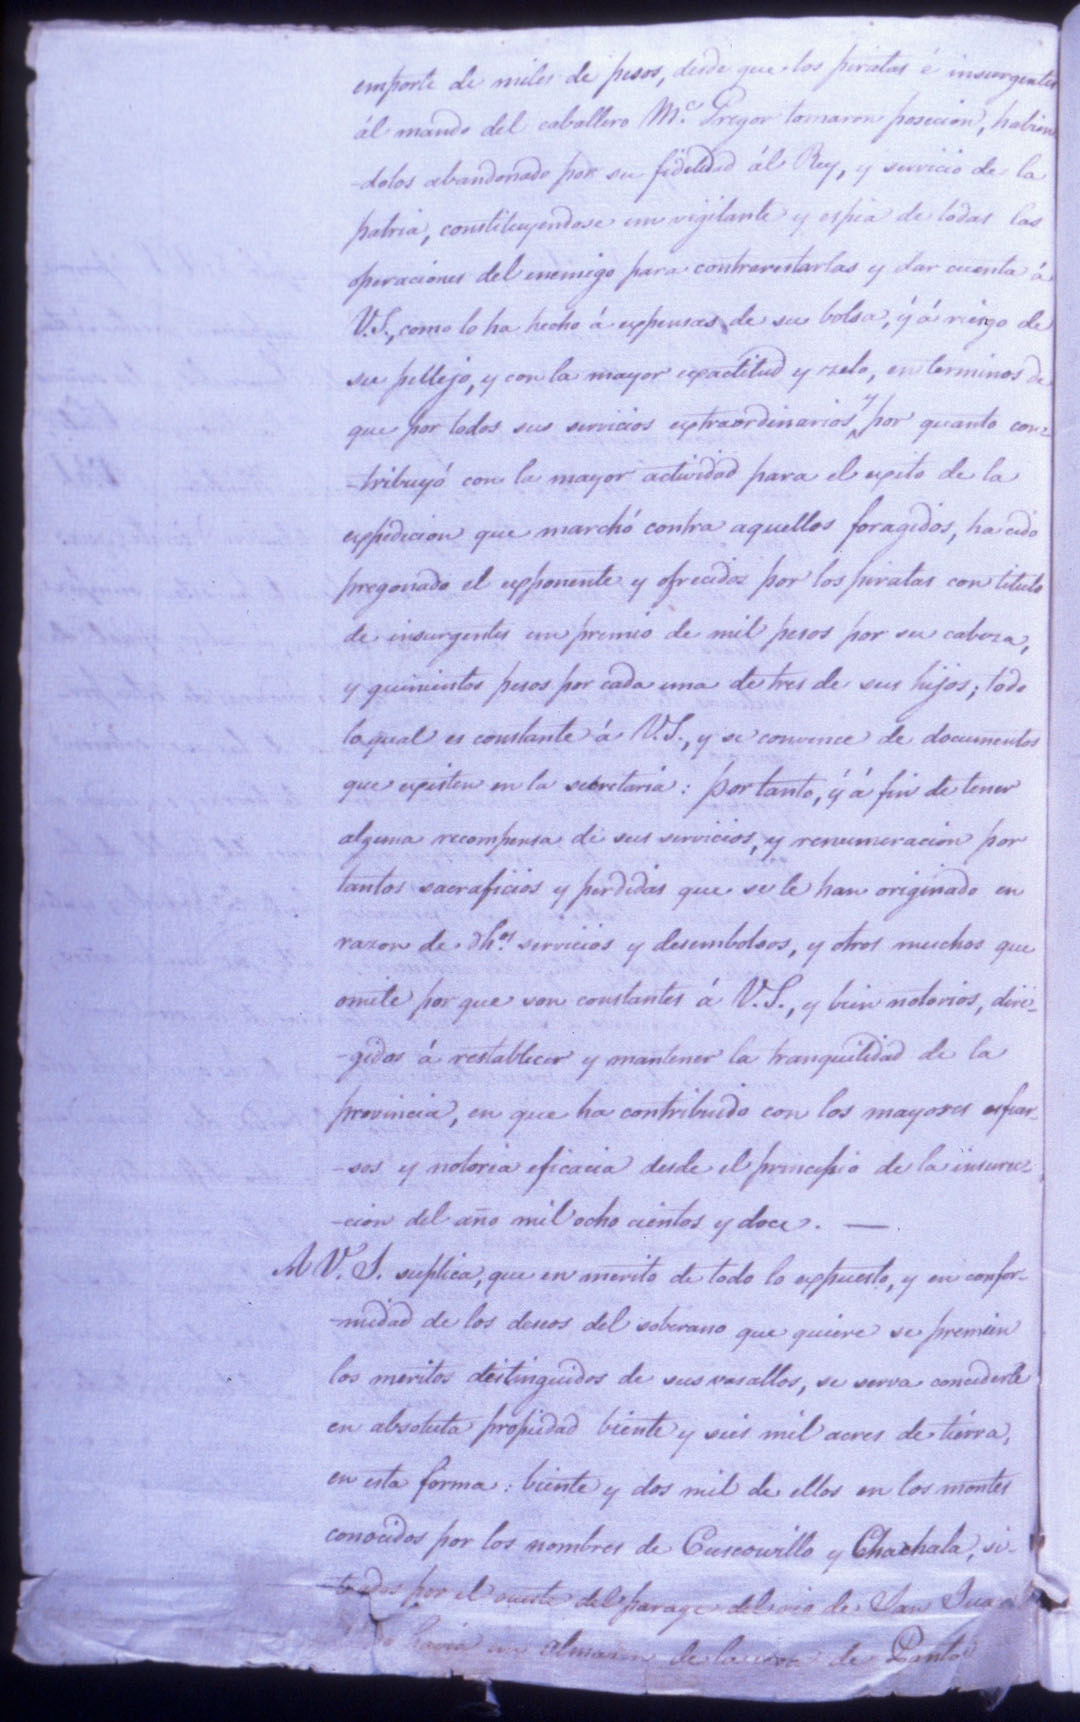 emporte de miles de pesos, desde que los piratas é insurgentes
ál mando del caballero Mᶜ Gregor tomaron poseción, habien
-dolos abandonado por su fidelidad ál Rey, y servicio de la
patria, constituyendose un vigilante y espia de todas las
operaciones del enemigo para contrarestarlas y dar cuenta á
V.S., como lo ha hecho á expensas de su bolsa, ý á riesgo de
su pellejo, y con la mayor exáctitud y zelo, en terminos de
que por todos sus servicios extraordinarios y por quanto con-
-tribuyó con la mayor actividad para el exito de la
expedicion que marchó contra aquellos foragidos, ha cido
pregonado el exponente y ofrecidos por los piratas con titulo
de insurgentes un premio de mil pesos por su cabeza,
y quinientos pesos por cada una de tres de sus hijos; todo
lo qual es constante á V.S., y se convence de documentos
que existen en la secretaria: por tanto, ý á fin de tener
alguna recompensa de sus servicios, y renumeracion por
tantos sacraficios y perdidas que se le han originado en
razon de dhos. servicios y desembolsos, y otros muchos que
omite por que son constantes á V.S., y bien notorios, diri-
-gidos á restablecer y mantener la tranquilidad de la
provincia, en que ha contribuido con los mayores esfuer-
-sos y notoria eficacia desde el principio de la insurec-
-cion del año mil ocho cientos y doce. —
A V. S. suplica, que en merito de todo lo expuesto, y en confor-
-midad de los deseos del soberano que quiere se premien
los meritos distinguidos de sus vasallos, se serva concederle
en absoluta propiedad biente y seis mil acres de tierra,
en esta forma: biente y dos mil de ellos en los montes
conocidos por los nombres de Cuscowillo y Chachala, si-
-tuados por el oueste del parage del rio de San Juan
havia un almazen de la casa de Panton